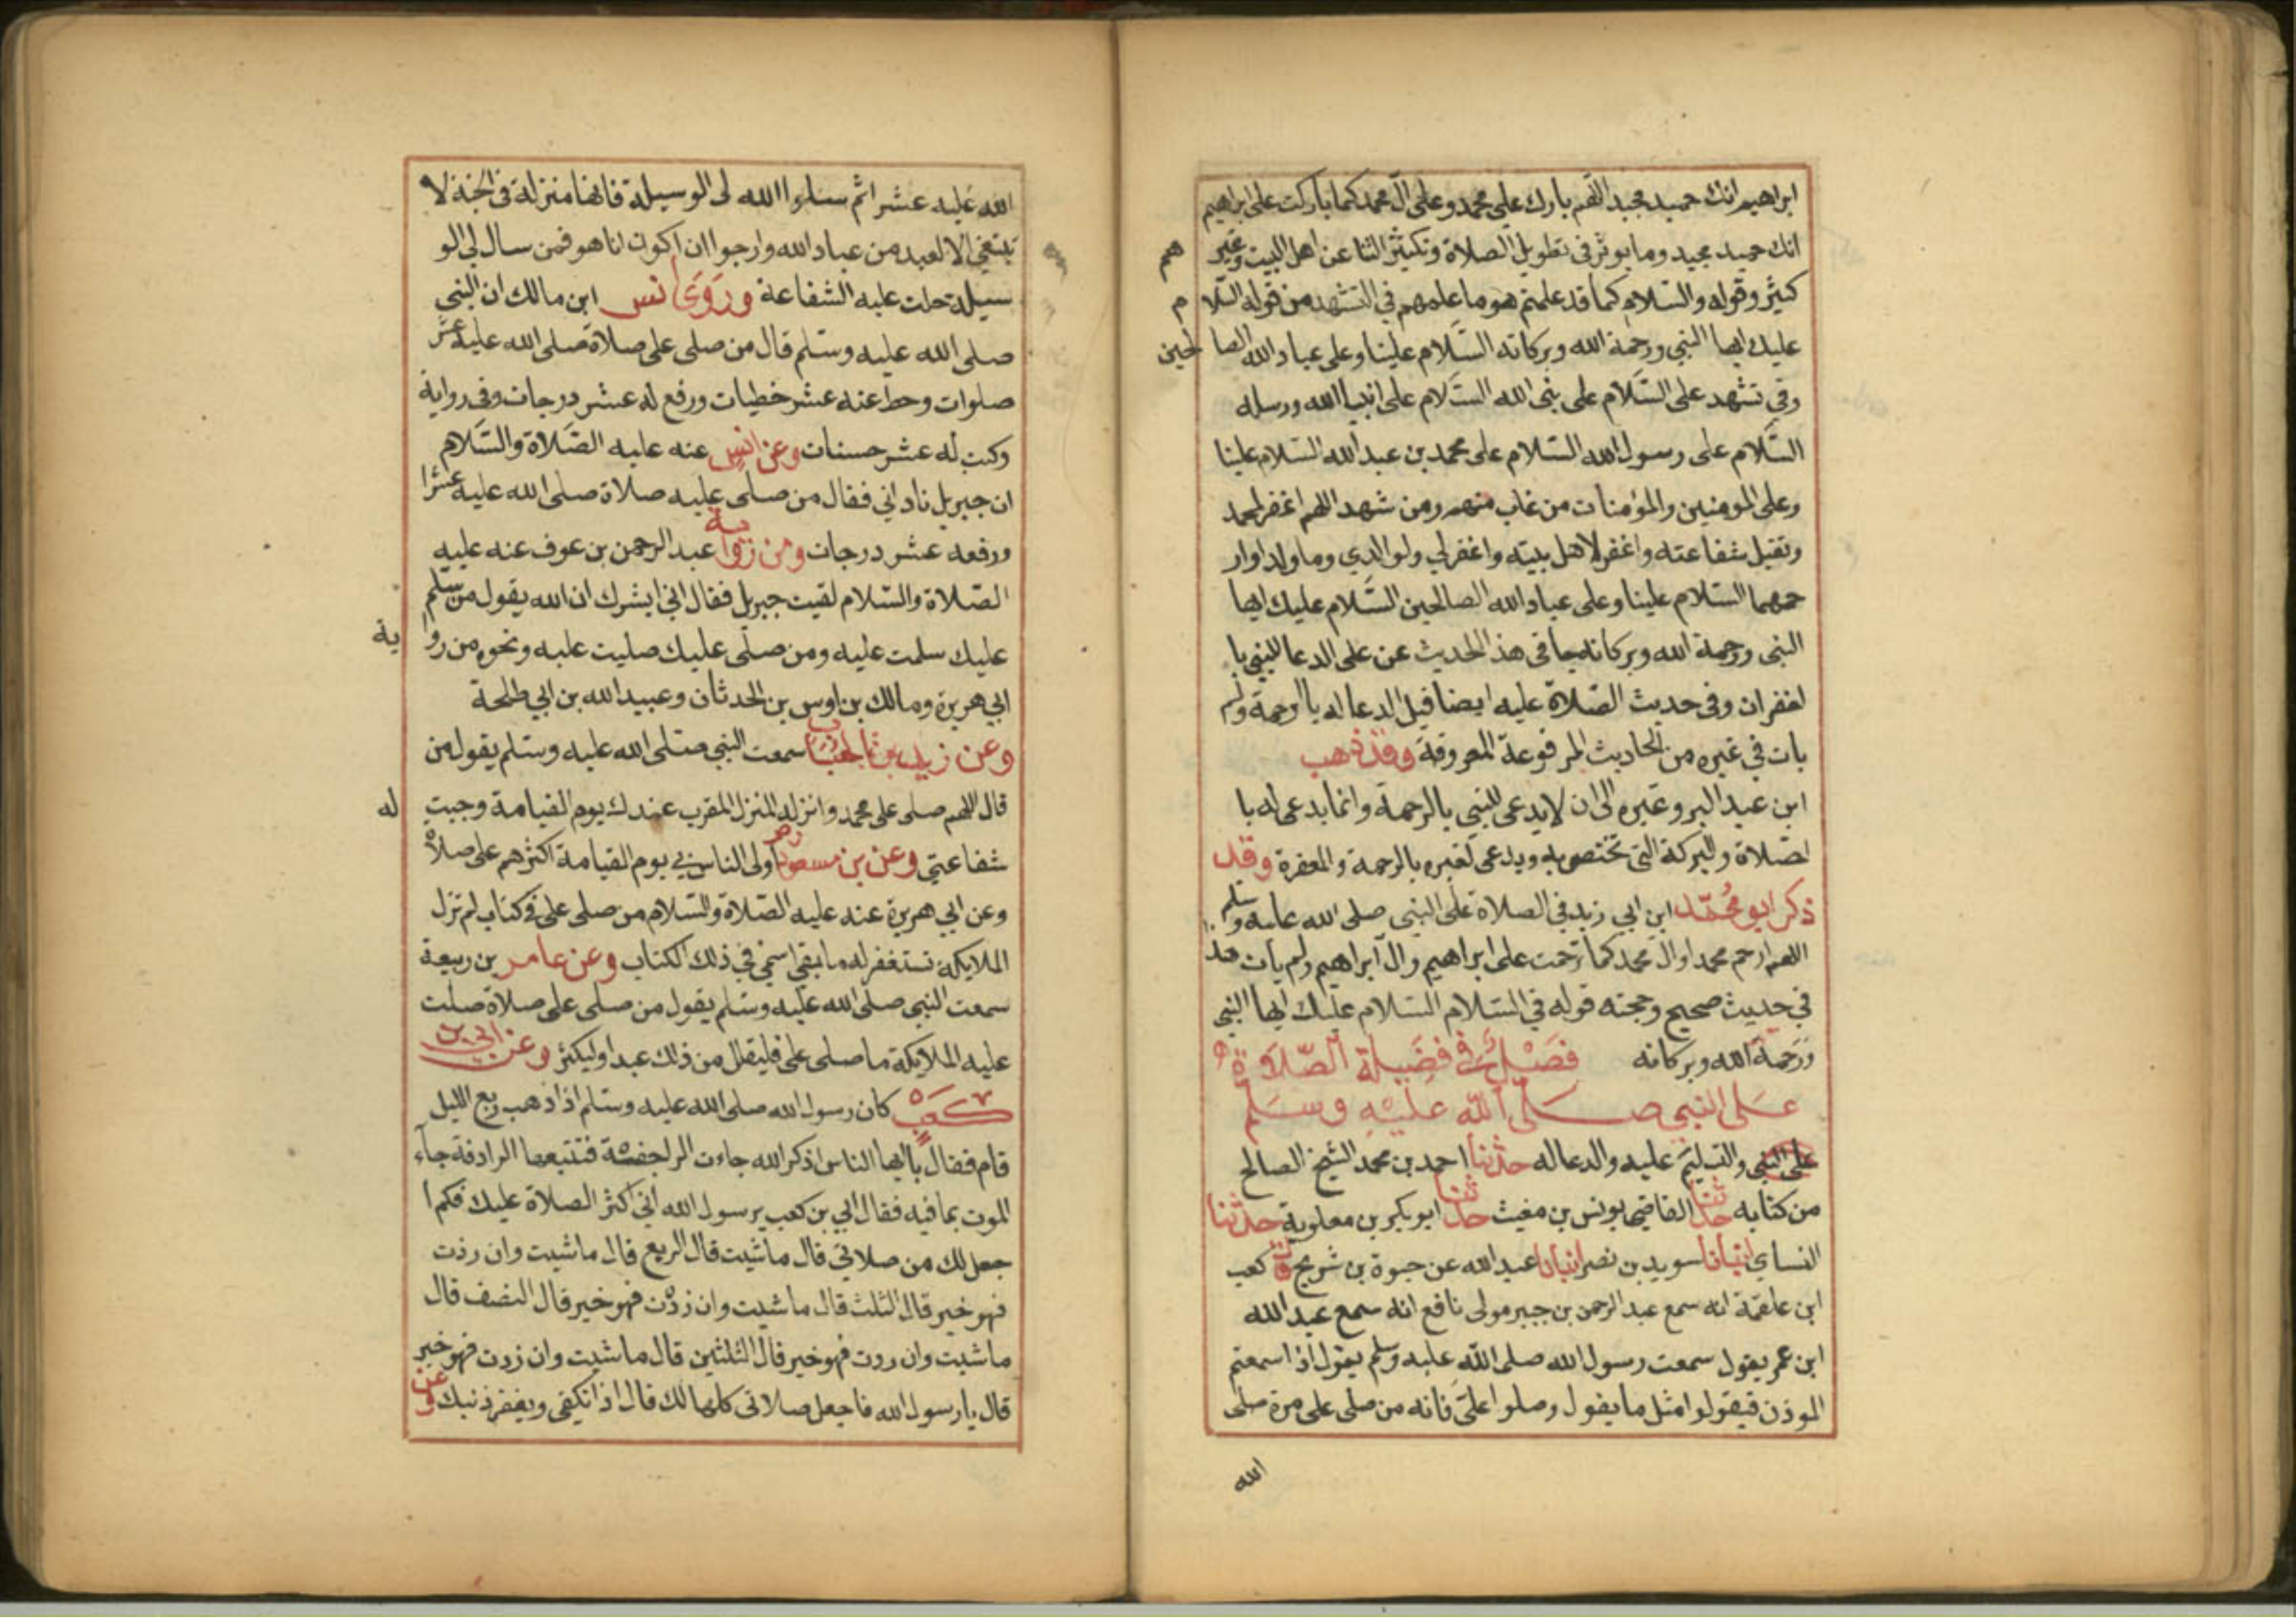 ابراهيم انك حميد مجيد اللهم بارك على محمد وعلى ال محمد كما باركت على ابراهيم
انك حميد مجيد وما يوثر في تطويل الصلاة وتكثير الثنا عن اهل البيت وغير هم
كثير وقوله والسلام كما قد علمتم هو ما علمهم في التشهد من قوله السلا م
عليك ايها النبي ورحمة الله وبركاته السلام علينا وعلى عباد الله الصا لحين
وفي تشهد على السلام على نبى الله السلام على انبيا الله ورسله
السلام على رسول الله السلام على محمد بن عبد الله السلام علينا
وعلى المومنين والمؤمنات من غاب منهم ومن شهد اللهم اغفر لمحمد
وتقبل شفاعته واغفر لاهل بيته واغفر لي ولوالدي وما ولد اوار
حمهما السلام علينا وعلى عباد الله الصالحين السلام عليك ايها
النبى ورحمة الله وبركاته جا في هذ الحديث عن على الدعا للنبي با
لغفران وفى حديث الصلاة عليه ايضا قبل الدعا له بالرحمة ولم
يات في غيره من الحاديث المرفوعة المعروفة وقد ذهب
ابن عبد البر وغيره الى ان لا يدعى للنبي بالرحمة وانما يدعى له با
لصلاة والبركة التى تختص به ويدعى لغيره بالرحمة والمغفرة وقد
ذكر ابو محمد ابن ابي زيد في الصلاة على النبي صلى الله عليه وسلم
اللهم ارحم محمدا وال محمد كما ترحمت على ابراهيم وال ابراهيم ولم يات هذ
في حديث صحيح وحجته قوله في السلام السلام عليك ايها النبي
ورحمة الله وبركاته فصل في فضيلة الصلاة
على النبي صلى الله عليه وسلم
على النبي والتسليم عليه والدعا له حدثنا احمد بن محمد الشيخ الصالح
من كتابه حدثنا القاضي يونس بن مغيث حدثنا ابو بكر بن معاوية حدثنا
النساي انبأنا سويد بن نصر انبأنا عبد الله عن حيوة بن شريح قال كعب
ابن علقمة انه سمع عبد الرحمن بن جبير مولى نافع انه سمع عبد الله
ابن عمر يقول سمعت رسول الله صلى الله عليه وسلم يقول اذا سمعتم
الموذن فيقولوا مثل ما يقول وصلوا على فانه من صلى على مرة صلى
الله
الله عليه عشر اثم سلوا الله لى الوسيلة فانها منزلة في الجنة لا
تبتغي الا لعبد من عباد الله وارجوا ان اكون انا هو فمن سال لي الو
سيلة حلت عليه الشفاعة وروى انس ابن مالك ان النبي
صلى الله عليه وسلم قال من صلى على صلاة صلى الله عليه عشر
صلوات وحط عنه عشر خطيات ورفع له عشر درجات وفى رواية
وكتب له عشر حسنات وعن انس عنه عليه الصلاة والسلام
ان جبريل نادانى فقال من صلى عليه صلاة صلى الله عليه عشرا
ورفعه عشر درجات ومن رواية عبد الرحمن بن عوف عنه عليه
الصلاة والسلام لقيت جبريل فقال اني ابشرك ان الله يقول من سلم
عليك سلمت عليه ومن صلى عليك صليت عليه ونحوه من روا ية
ابي هريرة ومالك بن اوس بن الحدثان وعبيد الله بن ابي طلحة
وعن زيد بن الحباب سمعت النبي صلى الله عليه وسلم يقول من
قال اللهم صلى على محمد وانزله المنزل المقرب عندك يوم القيامة وجبت له
شفاعتي وعن بن مسعود اولى الناس بي يوم القيامة اكثرهم على صلاة
وعن ابي هريرة عنه عليه الصلاة والسلام من صلى على في كتاب لم تزل
الملايكة تستغفر له ما بقى اسمي في ذلك الكتاب وعن عامر بن ربيعة
سمعت النبي صلى الله عليه وسلم يقول من صلى على صلاة صلت
عليه الملايكة ما صلى على فليقلل من ذلك عبد او ليكثر وعن ابي بن
كعب كان رسول الله صلى الله عليه وسلم اذا ذهب ربع الليل
قام فقال يا ايها الناس اذكر الله جاءت الراجفة تتبعها الرادفة جاء
الموت بما فيه فقال ابي بن كعب يرسول الله انى اكثر الصلاة عليك فكم ا
جعل لك من صلاتي قال ما شيت قال الربع قال ما شيت وان زدت
فهو خير قال الثلث قال ما شيت وان زدت فهو خير قال النصف قال
ما شيت وان زدت فهو خير قال الثلثين قال ما شيت وان زدت فهو خير
قال يا رسول الله فاجعل صلاتى كلها لك قال اذا تكفى ويغفر ذنبك وعن